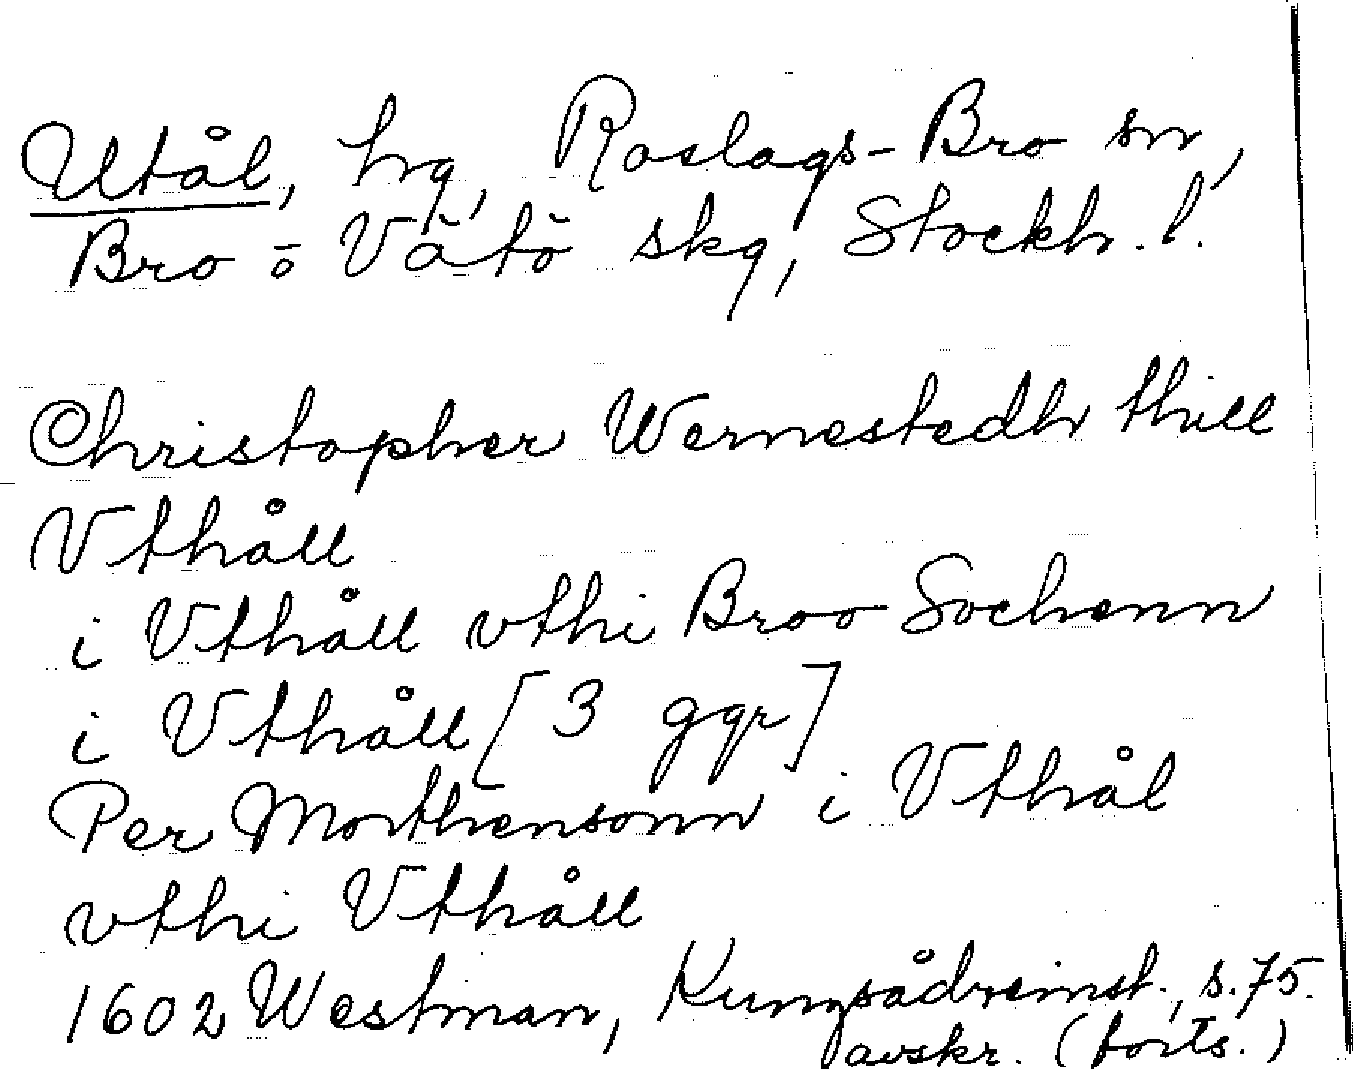 Utål, hg, Roslags-Bro sn,
Bro o Vätö skg, Stockh. l.
Christopher Wernestedh thill
Vthåll
i Vthåll vthi Broo Sochenn
i Vthåll [3 ggr]
Per Morthensonn i Vthål
vthi Vthåll
1602 Westman, Kungsådreinst., s. 75.
avskr. (forts.)